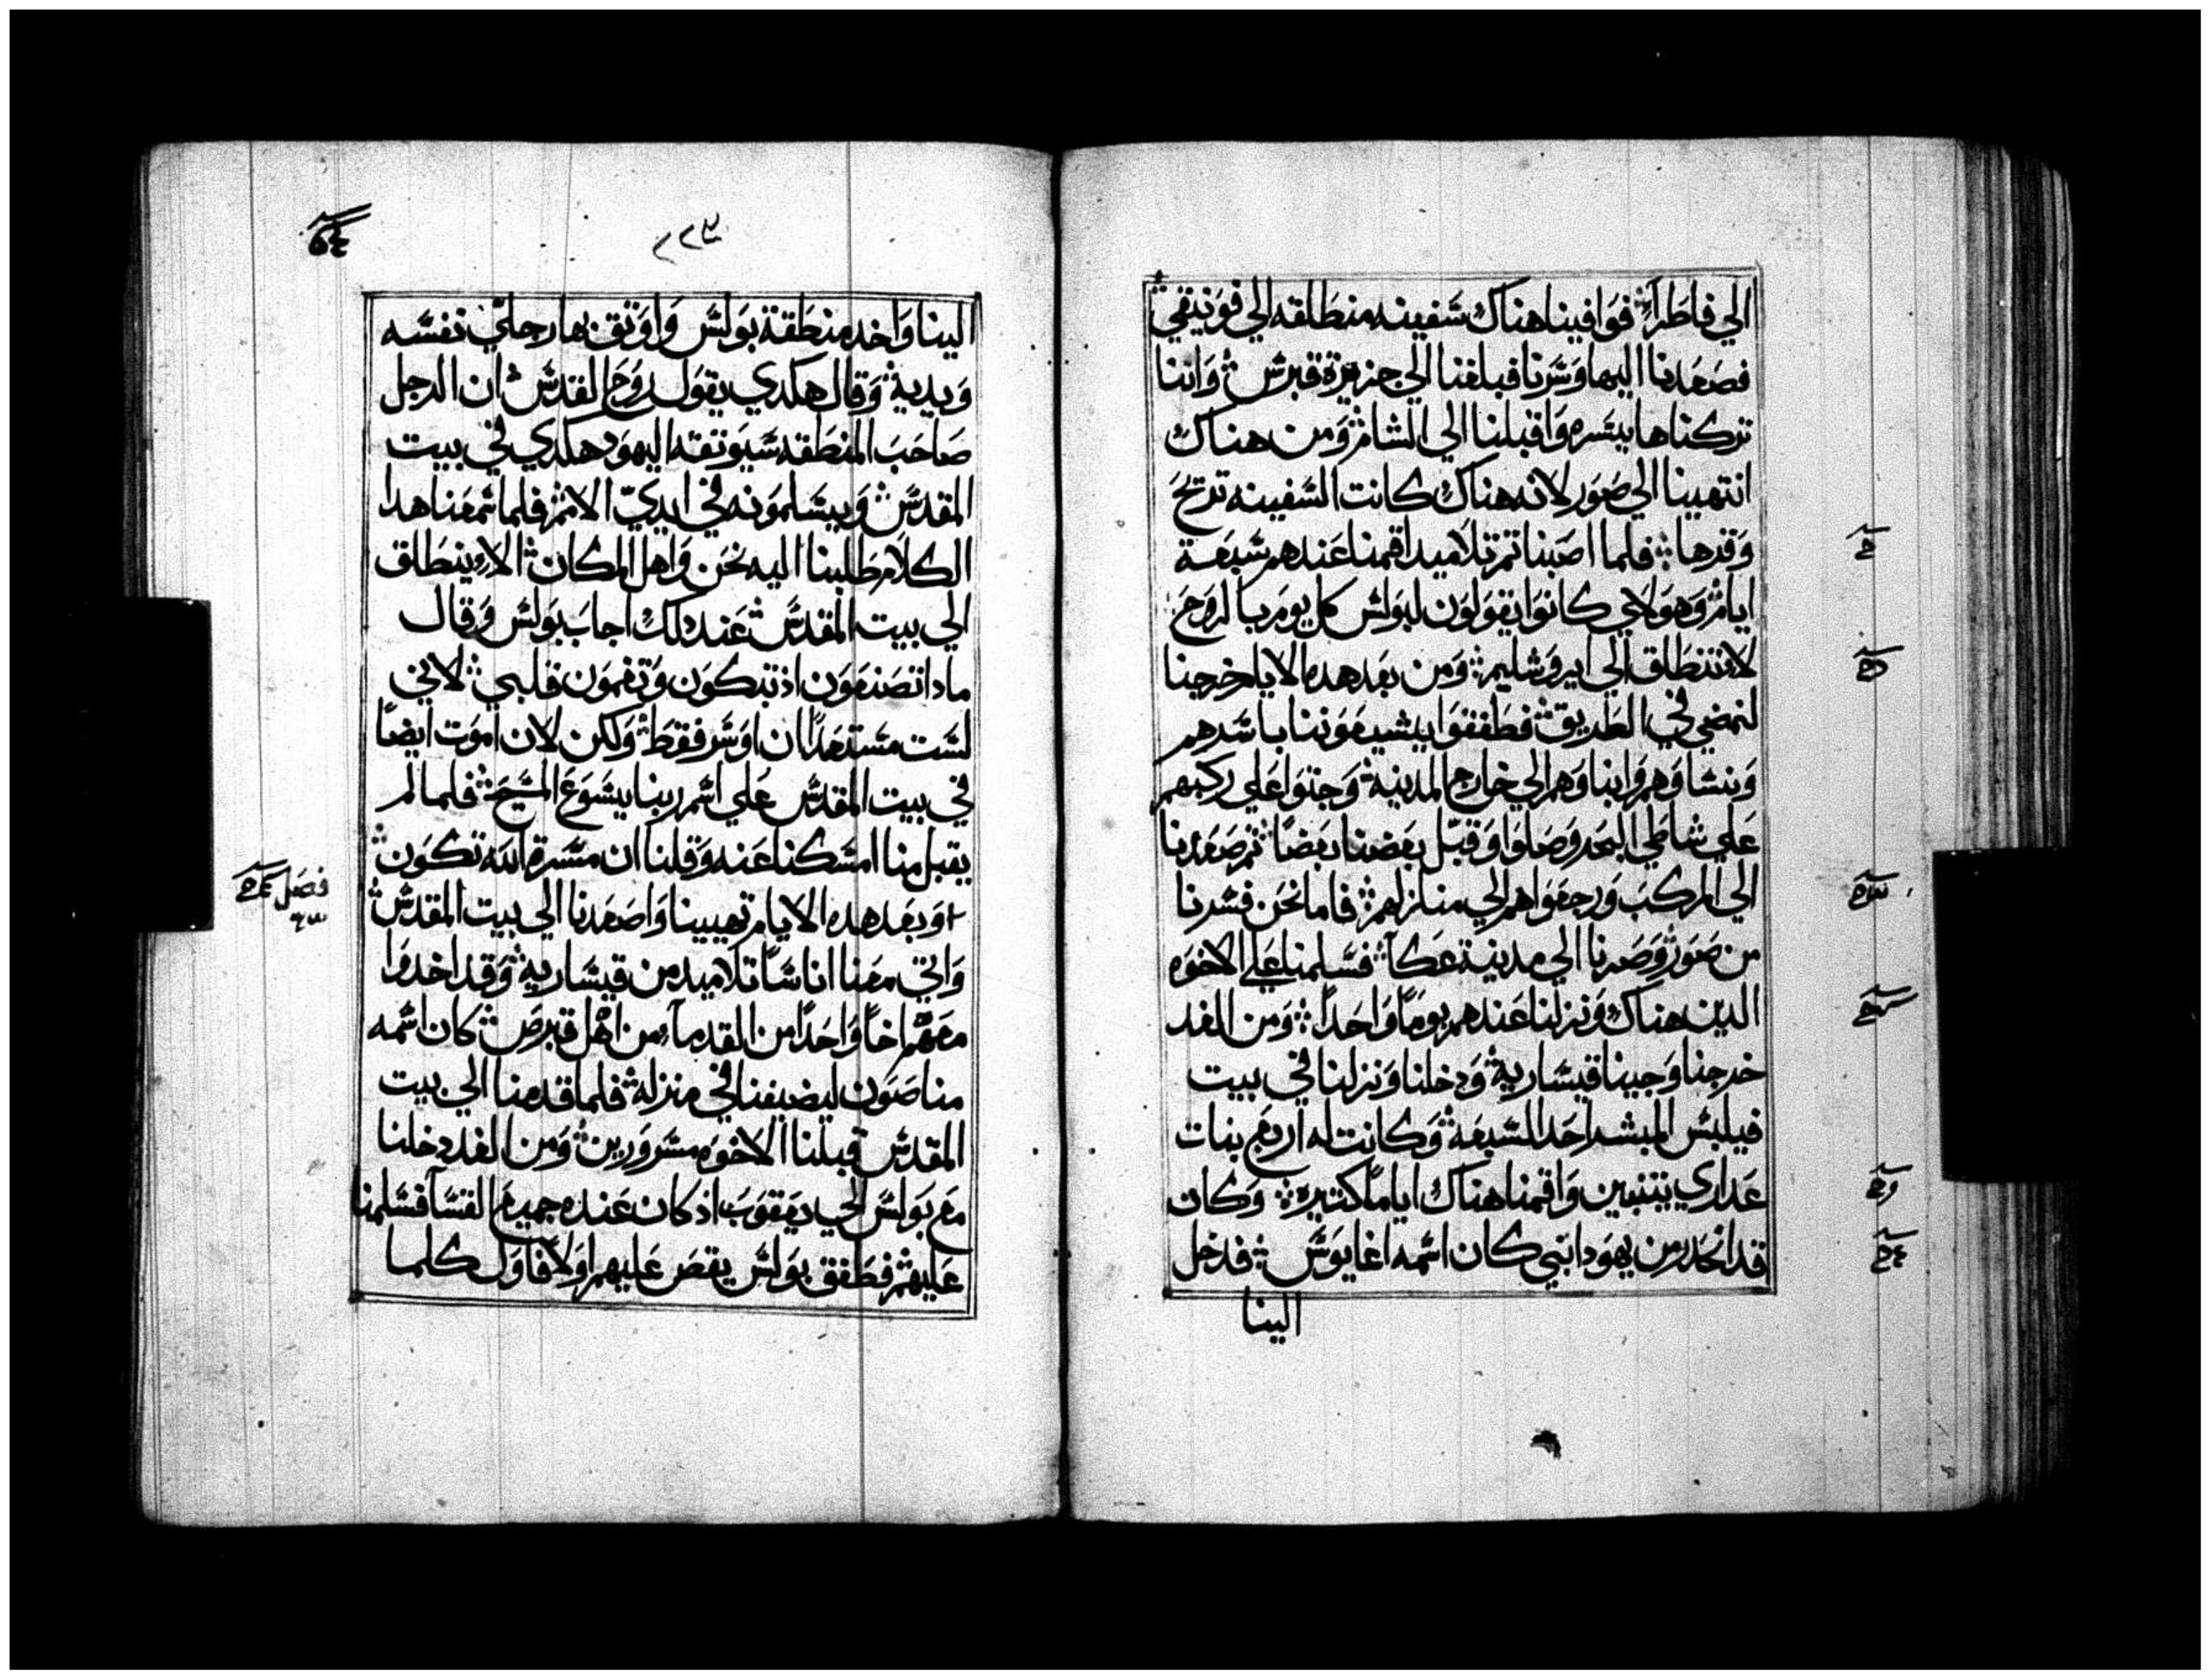 الي فاطرا فوافينا هناك سفينه منطلقه الي فونيقي
فصعدنا اليها وسرنا فبلغنا الي جزيرة قبرس واننا
تركناها يسره واقبلنا الي الشام ومن هناك
انتهينا الي صور لانه هناك كانت السفينه تريح
وقرها فلما اصبنا تم تلاميد اقمنا عندهم سبعة
ايام وهولاي كانوا يقولون لبولس كل يوم بالروح
لا تنطلق الي ايروشليم ومن بعد هده الايام خرجنا
لنمضي في الطريق فطفقوا يشيعوننا باسرهم
ونساوهم وابناوهم الي خارج المدينة وجتوا علي ركبهم
علي شاطي البحر وصلوا وقبل بعضنا بعضا تم صعدنا
الي المركب ورجعوا هم الي منازلهم فاما نحن فسرنا
من صور وصرنا الي مدينة عكا فسلمنا علي الاخوه
الدين هناك ونزلنا عندهم يوما واحدا ومن الغد
خرجنا وجينا قيسارية ودخلنا ونزلنا في بيت
فيلبس المبشر احد السبعة وكانت له اربع بنات
عداري يتنبين واقمنا هناك اياما كتيره وكان
قد انحدر من يهودا نبي كان اسمه اغابوس فدخل
الينا
٢٢٣
الينا واخد منطقة بولس واوتق بها رجلي نفسه
ويديه وقال هكدي يقول روح القدس ان الرجل
صاحب المنطقه سيوتقه اليهود هكدي في بيت
المقدس ويسلمونه في ايدي الامم فلما سمعنا هدا
الكلام طلبنا اليه نحن واهل المكان الا ينطلق
الي بيت المقدس عند دلك اجاب بولس وقال
مادا تصنعون اذ تبكون وتغمون قلبي لاني
لست مستعدا ان اوسر فقط ولكن لان اموت ايضا
في بيت المقدس علي اسم ربنا يسوع المسيح فلما لم
يقبل منا امسكنا عنه وقلنا ان مسرة الله تكون
وبعد هده الايام تهيينا واصعدنا الي بيت المقدس
فصل
واتي معنا اناسا تلاميد من قيسارية وقد اخدوا
معهم اخا واحدا من القدما من اهل قبرص كان اسمه
مناصون ليضيفنا في منزله فلما قدمنا الي بيت
المقدس قبلنا الاخوه مسرورين ومن الغد دخلنا
مع بولس الي يعقوب اذ كان عنده جميع القسا فسلمنا
عليهم فطفق بولس يقص عليهم اولا فاول كلما